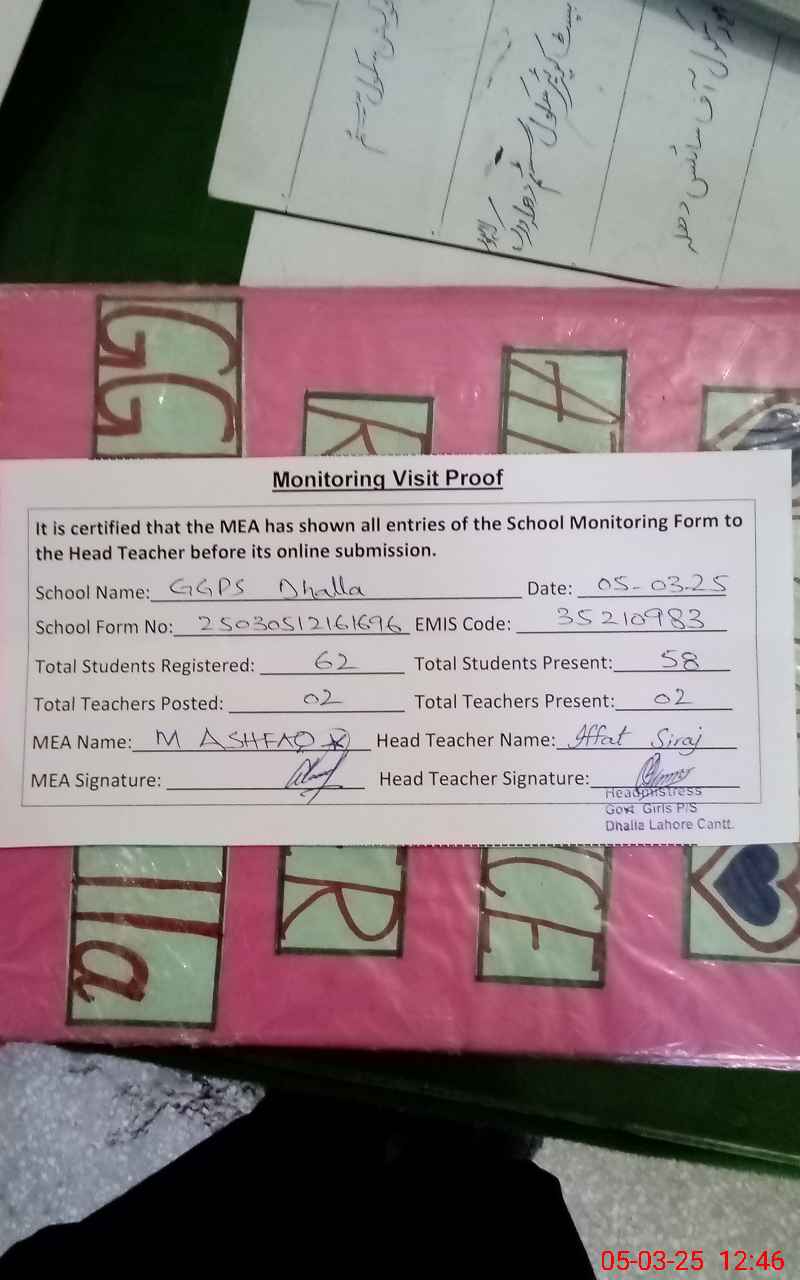 سکول آف سائنس دھلہ
GG
Monitoring Visit Proof
It is certified that the MEA has shown all entries of the School Monitoring Form to
the Head Teacher before its online submission.
School Name: GGPS Dhalla Date: 05-03-25
School Form No: 25030512161696 EMIS Code: 35210983
Total Students Registered: 62 Total Students Present: 58
Total Teachers Posted: 02 Total Teachers Present: 02
MEA Name: M ASHFAQ Head Teacher Name: Iffat Siraj
MEA Signature: Head Teacher Signature:
Headmistress
Govt. Girls P/S
Dhalla Lahore Cantt.
lla
R
CE
05-03-25 12:46